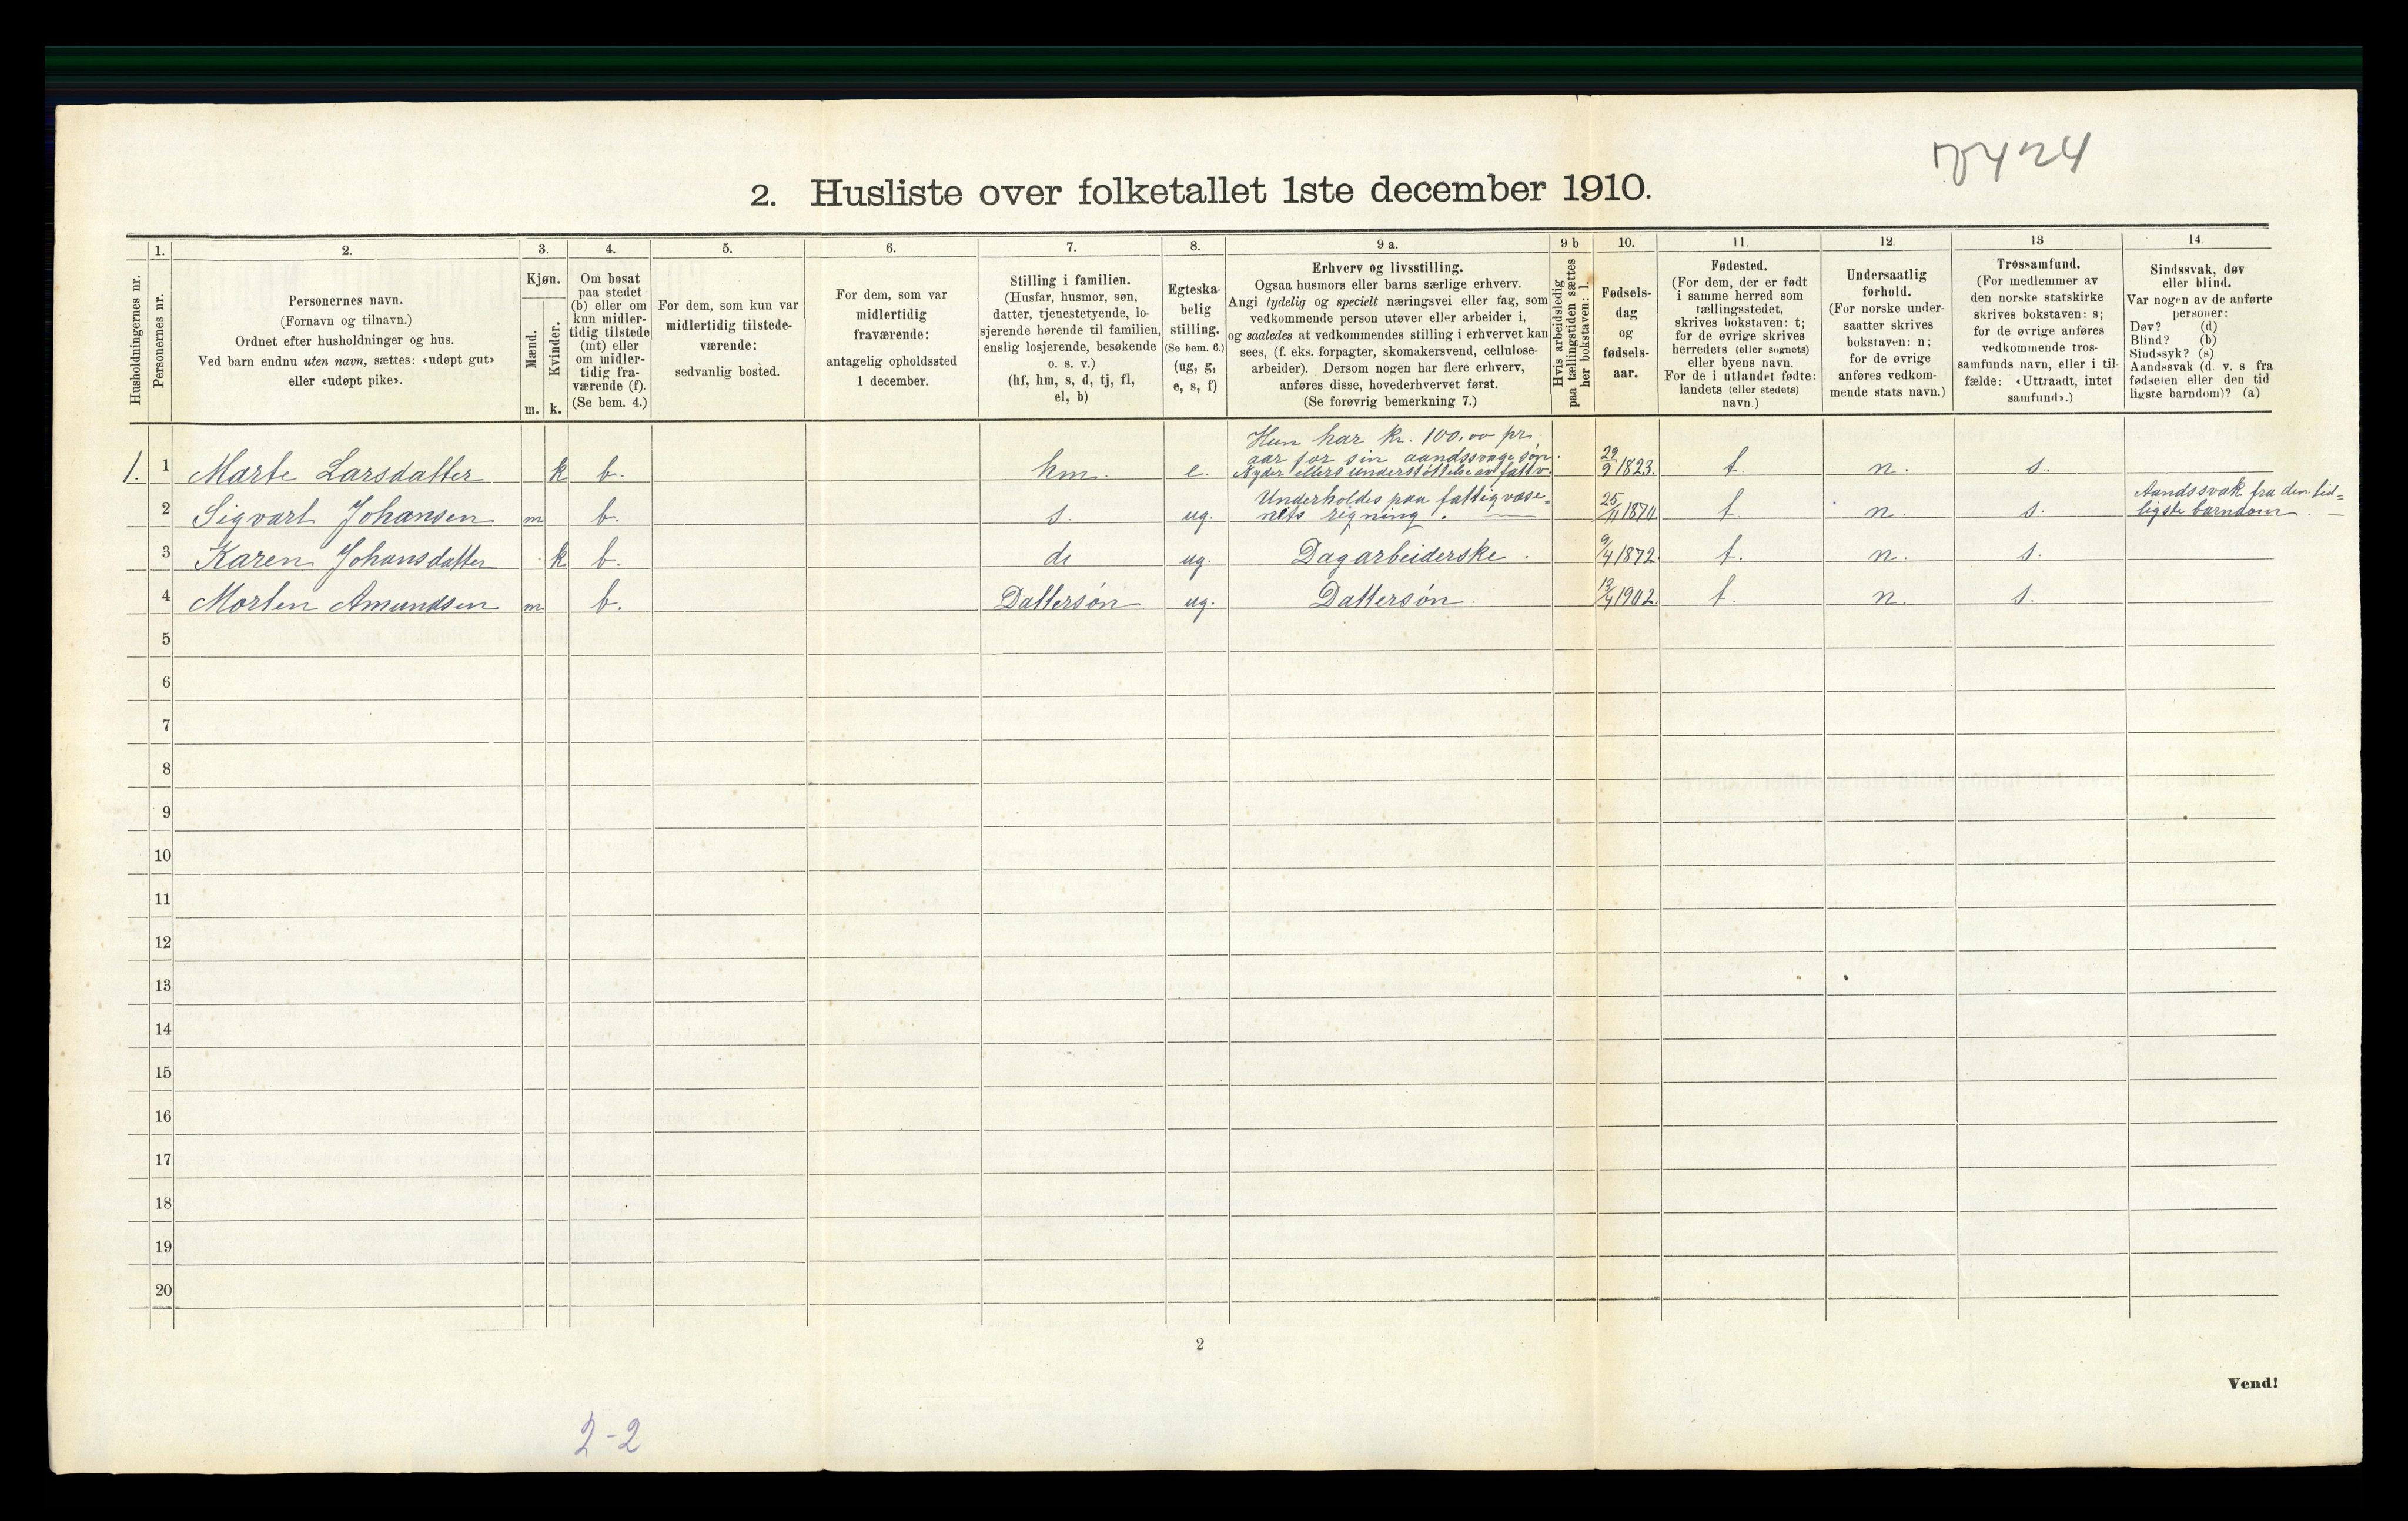 7424
2. Husliste over folketallet 1ste december 1910.
Husholdningernes nr.
1.
Personernes nr.
2.
Personernes navn.
(Fornavn og tilnavn.)
Ordnet efter husholdninger og hus.
Ved barn endnu uten navn, sættes: «udøpt gut»
eller «udøpt pike».
3.
Kjøn.
Mænd.
m.
Kvinder.
k.
4.
Om bosat
paa stedet
(b) eller om
kun midler-
tidig tilstede
(mt) eller
om midler-
tidig fra-
værende (f).
(Se bem. 4.)
5.
For dem, som kun var
midlertidig tilstede-
værende:
sedvanlig bosted.
6.
For dem, som var
midlertidig
fraværende:
antagelig opholdssted
1 december.
7.
Stilling i familien.
(Husfar, husmor, søn,
datter, tjenestetyende, lo-
sjerende hørende til familien,
enslig losjerende, besøkende
o. s. v.)
(hf, hm, s, d, tj, fl,
el, b)
8.
Egteska-
belig
stilling.
(Se bem. 6.)
(ug, g,
e, s, f)
9 a.
Erhverv og livsstilling.
Ogsaa husmors eller barns særlige erhverv.
Angi tydelig og specielt næringsvei eller fag, som
vedkommende person utøver eller arbeider i,
og saaledes at vedkommendes stilling i erhvervet kan
sees, (f. eks. forpagter, skomakersvend, cellulose-
arbeider). Dersom nogen har flere erhverv,
anføres disse, hovederhvervet først.
(Se forøvrig bemerkning 7.)
9 b
Hvis arbeidsledig
paa tællingstiden sættes
her bokstaven: l.
10.
Fødsels-
dag
og
fødsels-
aar.
11.
Fødested.
(For dem, der er født
i samme herred som
tællingsstedet,
skrives bokstaven: t;
for de øvrige skrives
herredets (eller sognets)
eller byens navn.
For de i utlandet fødte:
landets (eller stedets)
navn.)
12
Undersaatlig
forhold.
(For norske under-
saatter skrives
bokstaven: n;
for de øvrige
anføres vedkom-
mende stats navn.)
13
Trossamfund.
(For medlemmer av
den norske statskirke
skrives bokstaven: s;
for de øvrige anføres
vedkommende tros-
samfunds navn, eller i til
fælde: «Uttraadt, intet
samfund».)
14.
Sindssvak, døv
eller blind.
Var nogen av de anførte
personer:
Døv? (d)
Blind? (b)
Sindssyk? (s)
Aandssvak (d. v. s fra
fødselen eller den tid
ligste barndom)? (a)
Hun har kr. 100,00 pr.
aar for sin aandssvage søn.
1. 1 Marte Larsdatter k b. hm. e. Nyder ellers understøttelse av fattv. 29/9 1823. t. n. s.
Underholdes paa fattigvæse- Aandssvak fra den tid-
2 Sigvart Johansen m b. s. ug. nets regning. 25/11 1870. t. n. s. ligste barndom.
3 Karen Johansdatter k b. d. ug. Dagarbeiderske. 9/4 1872. t. n. s.
4 Morten Amundsen m b. Dattersøn ug. Dattersøn. 13/4 1902. t. n. s.
5
6
7
8
9
10
11
12
13
14
15
16
17
18
19
20
2
Vend!
2-2